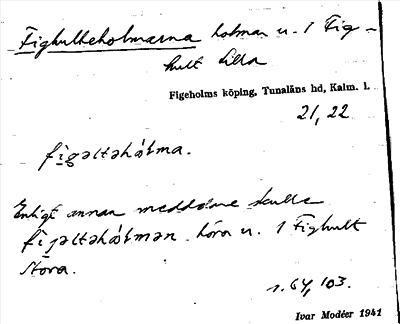 Fighultholmarna holmar u. 1 Fig-
hult Lilla
Figeholms köping, Tunaläns hd, Kalm. l.
21, 22
fìgəltəhɔ́lma.
Enligt annan meddelare skulle
fìgəltəhɔ́lman höra u. 1 Fighult
Stora.
s. 64, 103.
Ivar Modéer 1941